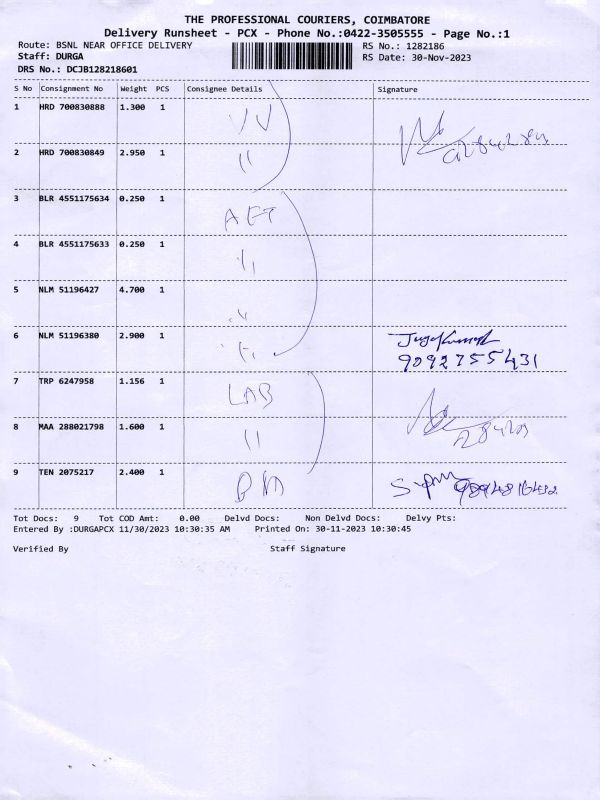 THE PROFESSIONAL COURIERS, COIMBATORE
Delivery Runsheet - PCX - Phone No.:0422-3505555 - Page No.:1
Route: BSNL NEAR OFFICE DELIVERY RS No.: 1282186
Staff: DURGA RS Date: 30-Nov-2023
DRS No.: DCJB128218601
S No Consignment No Weight PCS Consignee Details Signature
1 HRD 700830888 1.300 1
2 HRD 700830849 2.950 1 11
3 BLR 4551175634 0.250 1 AFT
4 BLR 4551175633 0.250 1
5 NLM 51196427 4.700 1
6 NLM 51196380 2.900 1
9092755431
7 TRP 6247958 1.156 1 LAB
8 MAA 288021798 1.600 1 11
9 TEN 2075217 2.400 1
Tot Docs: 9 Tot COD Amt: 0.00 Delvd Docs: Non Delvd Docs: Delvy Pts:
Entered By :DURGAPCX 11/30/2023 10:30:35 AM Printed On: 30-11-2023 10:30:45
Verified By Staff Signature